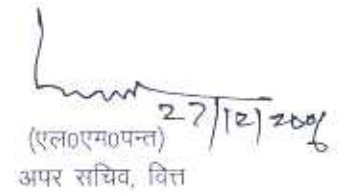 27/12/2006
(एल0एम0पन्त)
अपर सचिव, वित्त